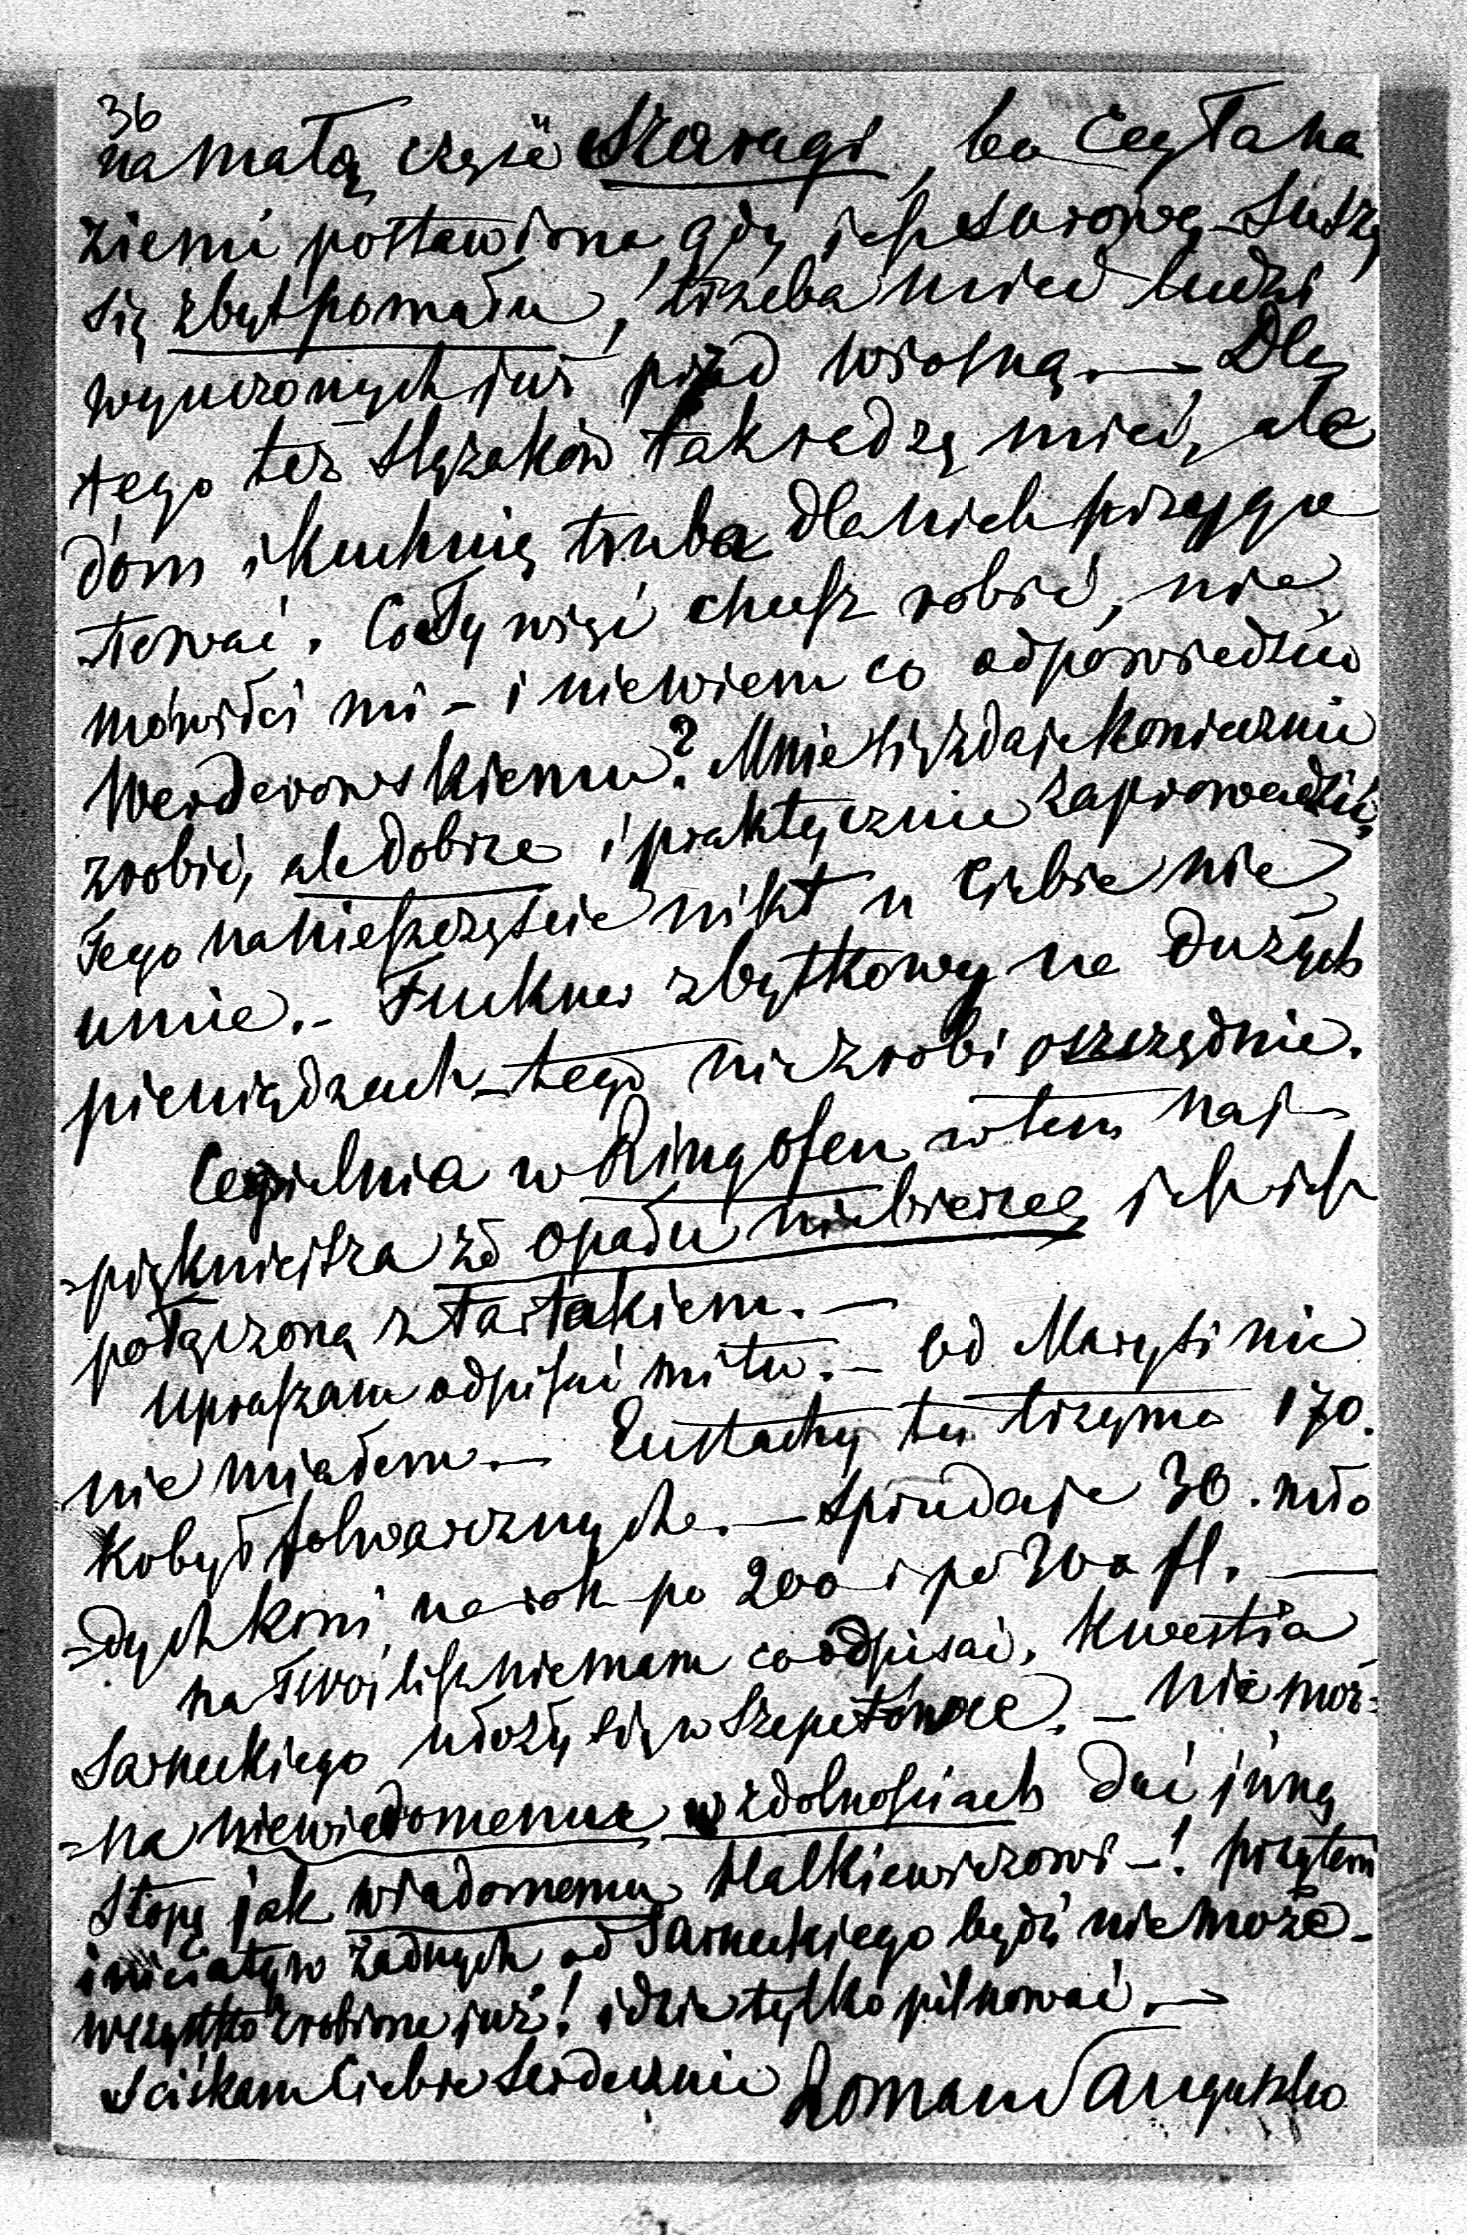 36
na małą część Szaragi, bo Cegła na
ziemi postawiona, gdy jest surową – suszy
się zbyt pomału, trzeba mieć ludzi
wyuczonych już przed wiosną. — Dla
tego też Ślązaków tak radzę mieć, ale
dom i kuchnię trzeba dla nich przygo
tować. Co Ty więc chcesz robić, nie
mówiłeś mi – i nie wiem co odpowiedzieć
Werderowskiemu? Mnie się zdaje koniecznie
zrobić, ale dobrze i praktycznie zaprowadzić,
Tego na nieszczęście nikt u Ciebie nie
umie. – zbytkowy na dużych
pieniądzach – tego nie zrobi oszczędnie.
Cegielnia w Ringofen w tem naj-
=piękniejsza że opału nie bierze, jest
połączoną z Tartakiem. —
Upraszam odpisać mi tu. – Od Marysi nic
nie miałem. — Eustachy tu trzyma 170.
Kobył folwarcznych. — Sprzedaje 30. mło
=dych koni na rok po 200 i po 300 fl. —
na Twój list nie mam co odpisać. Kwestia
Sarneckiego ułoży się w Szepetówce. – Nie moż=
=na niewiadomemu w zdolnościach dać inną
Stopę jak wiadomemu Małkiewiczowi –! przytem
iniciatyw żadnych od Sarneckiego być nie może –
wszystko zrobione już! idzie tylko pilnować. —
Ściskam Ciebie Serdecznie Roman Sanguszko